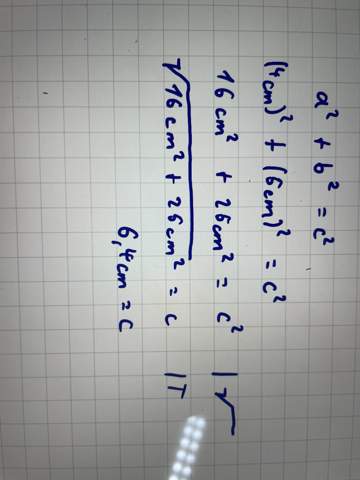 a² + b² = c²
(4cm)² + (6cm)² = c²
16cm² + 26cm² = c² | √
√16cm² + 26cm² = c | T
6,4cm = c